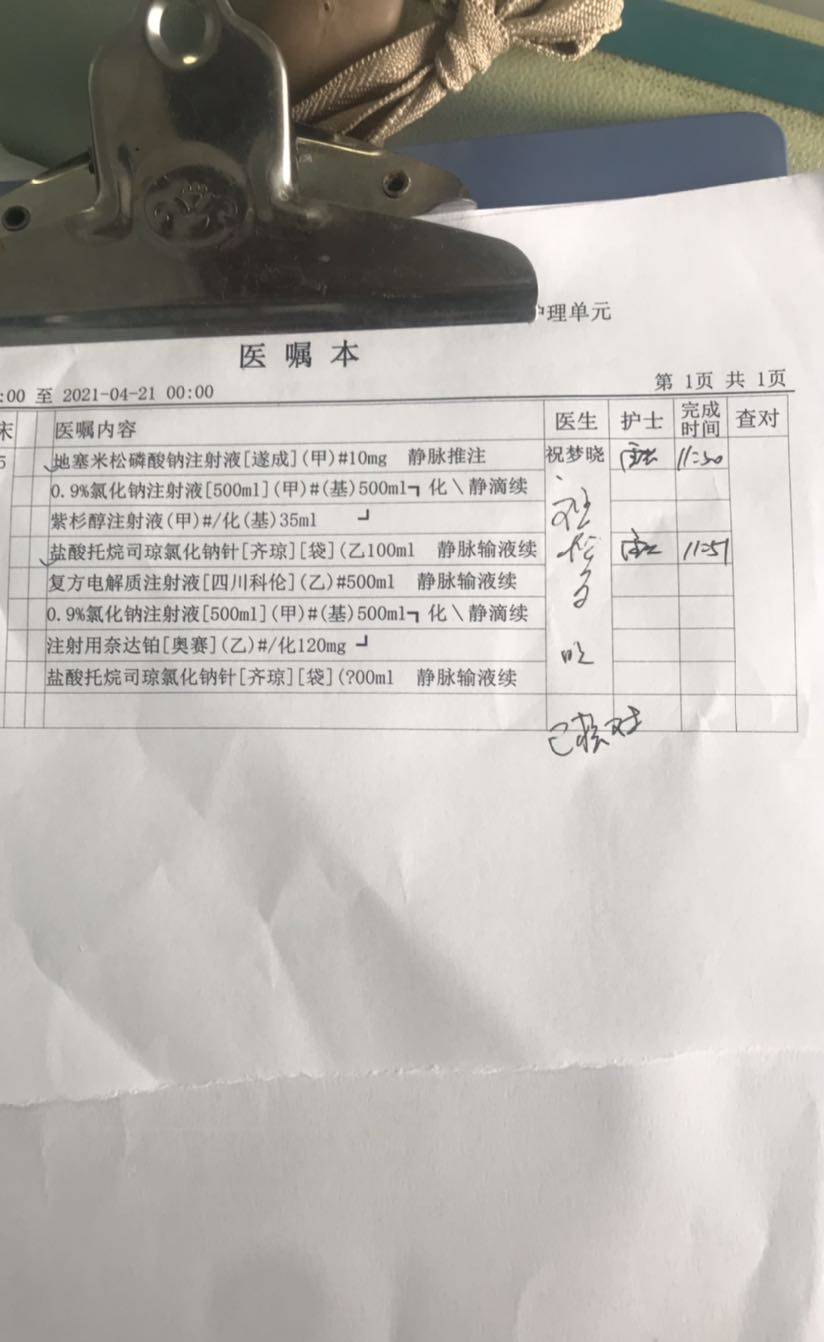 护理单元
医嘱本
:00 至 2021-04-21 00:00
第 1页 共 1页
床 医嘱内容 医生 护士 完成时间 查对
5 地塞米松磷酸钠注射液[遂成](甲)#10mg 静脉推注 祝梦晓 11:50
0.9%氯化钠注射液[500ml](甲)#(基)500ml┓ 化\静滴续
紫杉醇注射液(甲)#/化(基)35ml ┛
盐酸托烷司琼氯化钠针[齐琼][袋](乙100ml 静脉输液续 11:51
复方电解质注射液[四川科伦](乙)#500ml 静脉输液续
0.9%氯化钠注射液[500ml](甲)#(基)500ml┓ 化\静滴续
注射用奈达铂[奥赛](乙)#/化120mg ┛
盐酸托烷司琼氯化钠针[齐琼][袋](?00ml 静脉输液续
已核对